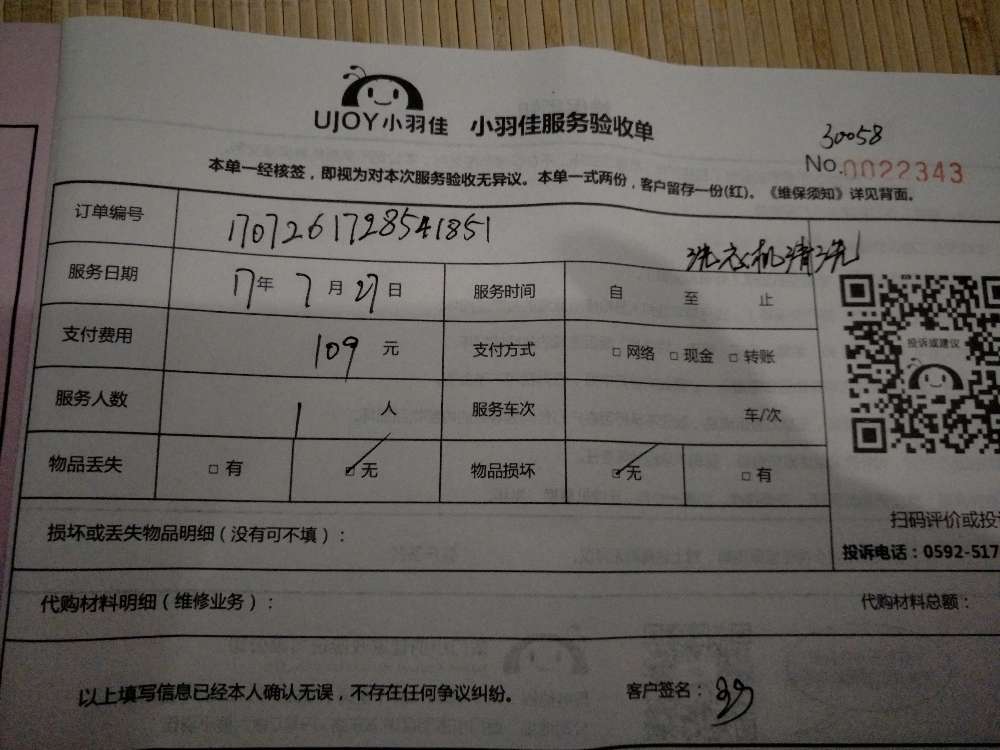 UJOY小羽佳 小羽佳服务验收单
30058
No.0022343
本单一经核签，即视为对本次服务验收无异议。本单一式两份，客户留存一份(红)。《维保须知》详见背面。
订单编号 1707261728541851
洗衣机清洗
服务日期 17年 7月 27日 服务时间 自 至 止
支付费用 109 元 支付方式 □网络 □现金 □转账
投诉或建议
服务人数 1 人 服务车次 车/次
物品丢失 □有 ☑无 物品损坏 ☑无 □有
扫码评价或投
损坏或丢失物品明细（没有可不填）：
投诉电话：0592-517
代购材料明细（维修业务）： 代购材料总额：
以上填写信息已经本人确认无误，不存在任何争议纠纷。 客户签名：